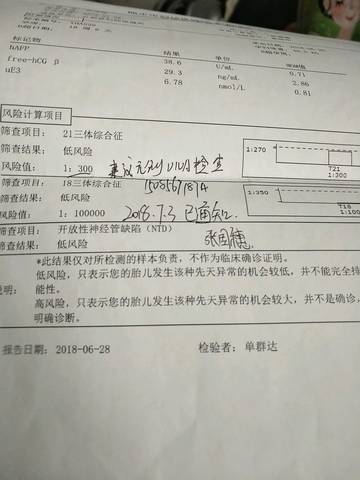 标记物 结果 单位
hAFP 38.6 U/mL 0.71
free-hCG β 29.3 ng/mL 2.86
uE3 6.78 nmol/L 0.81
风险计算项目
筛查项目: 21三体综合征
筛查结果: 低风险 1:270
风险值: 1: 300 建议无创DNA检查 T21
1:300
筛查项目: 18三体综合征
筛查结果: 低风险 1:350
风险值: 1: 100000 2018.7.3 已通知 T18
筛查项目: 开放性神经管缺陷（NTD）
*此结果仅对所检测的样本负责，不作为临床确诊证明。
低风险，只表示您的胎儿发生该种先天异常的机会较低，并不能完全排
说明: 能性。
高风险，只表示您的胎儿发生该种先天异常的机会较大，并不是确诊，
明确诊断。
报告日期: 2018-06-28 检验者: 单群达